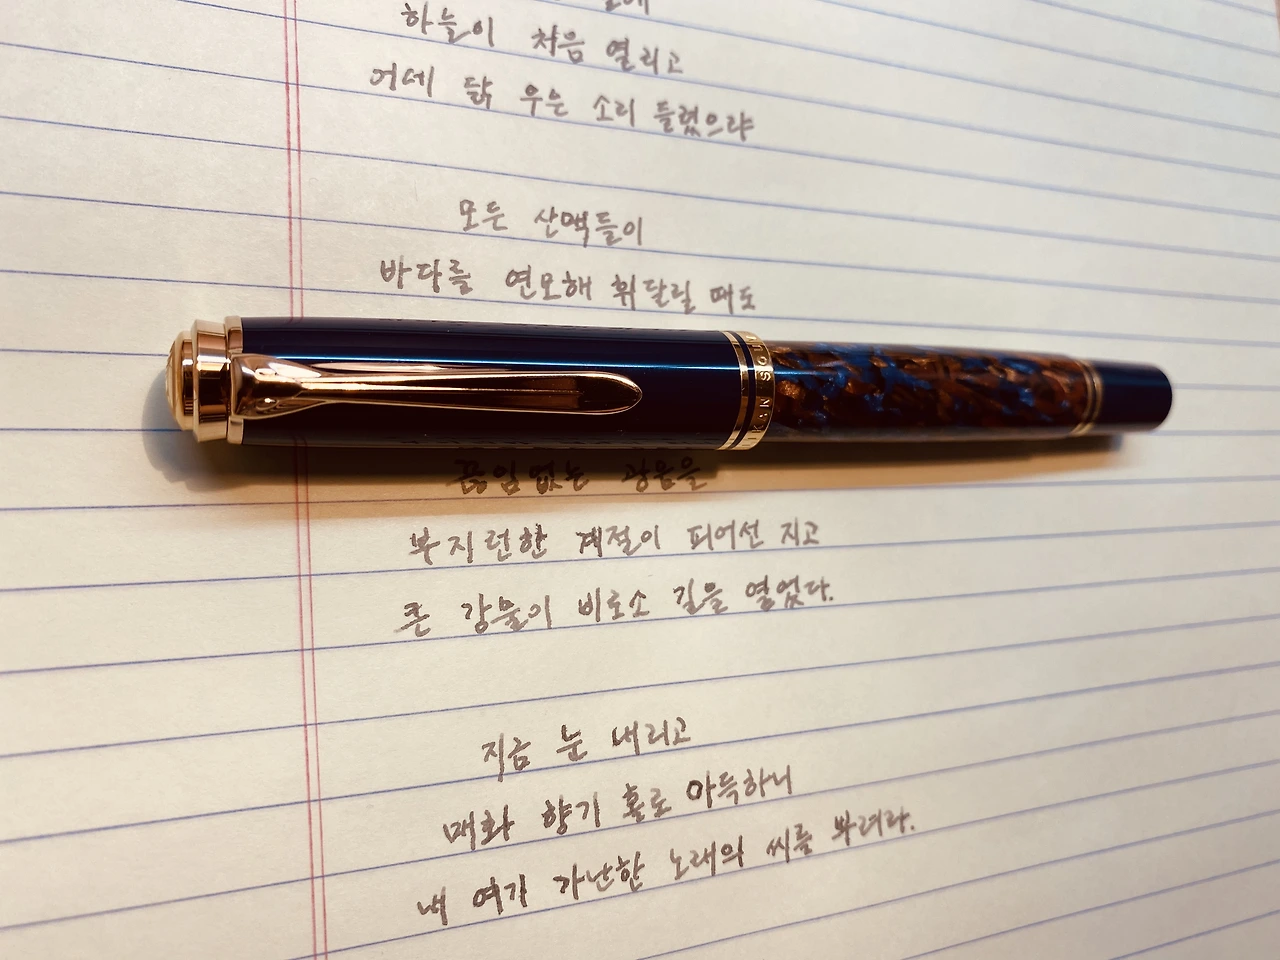 하늘이 처음 열리고
어데 닭 우는 소리 들렸으랴
모든 산맥들이
바다를 연모해 휘달릴 때도
끊임없는 광음을
부지런한 계절이 피어선 지고
큰 강물이 비로소 길을 열었다.
지금 눈 내리고
매화 향기 홀로 아득하니
내 여기 가난한 노래의 씨를 뿌려라.